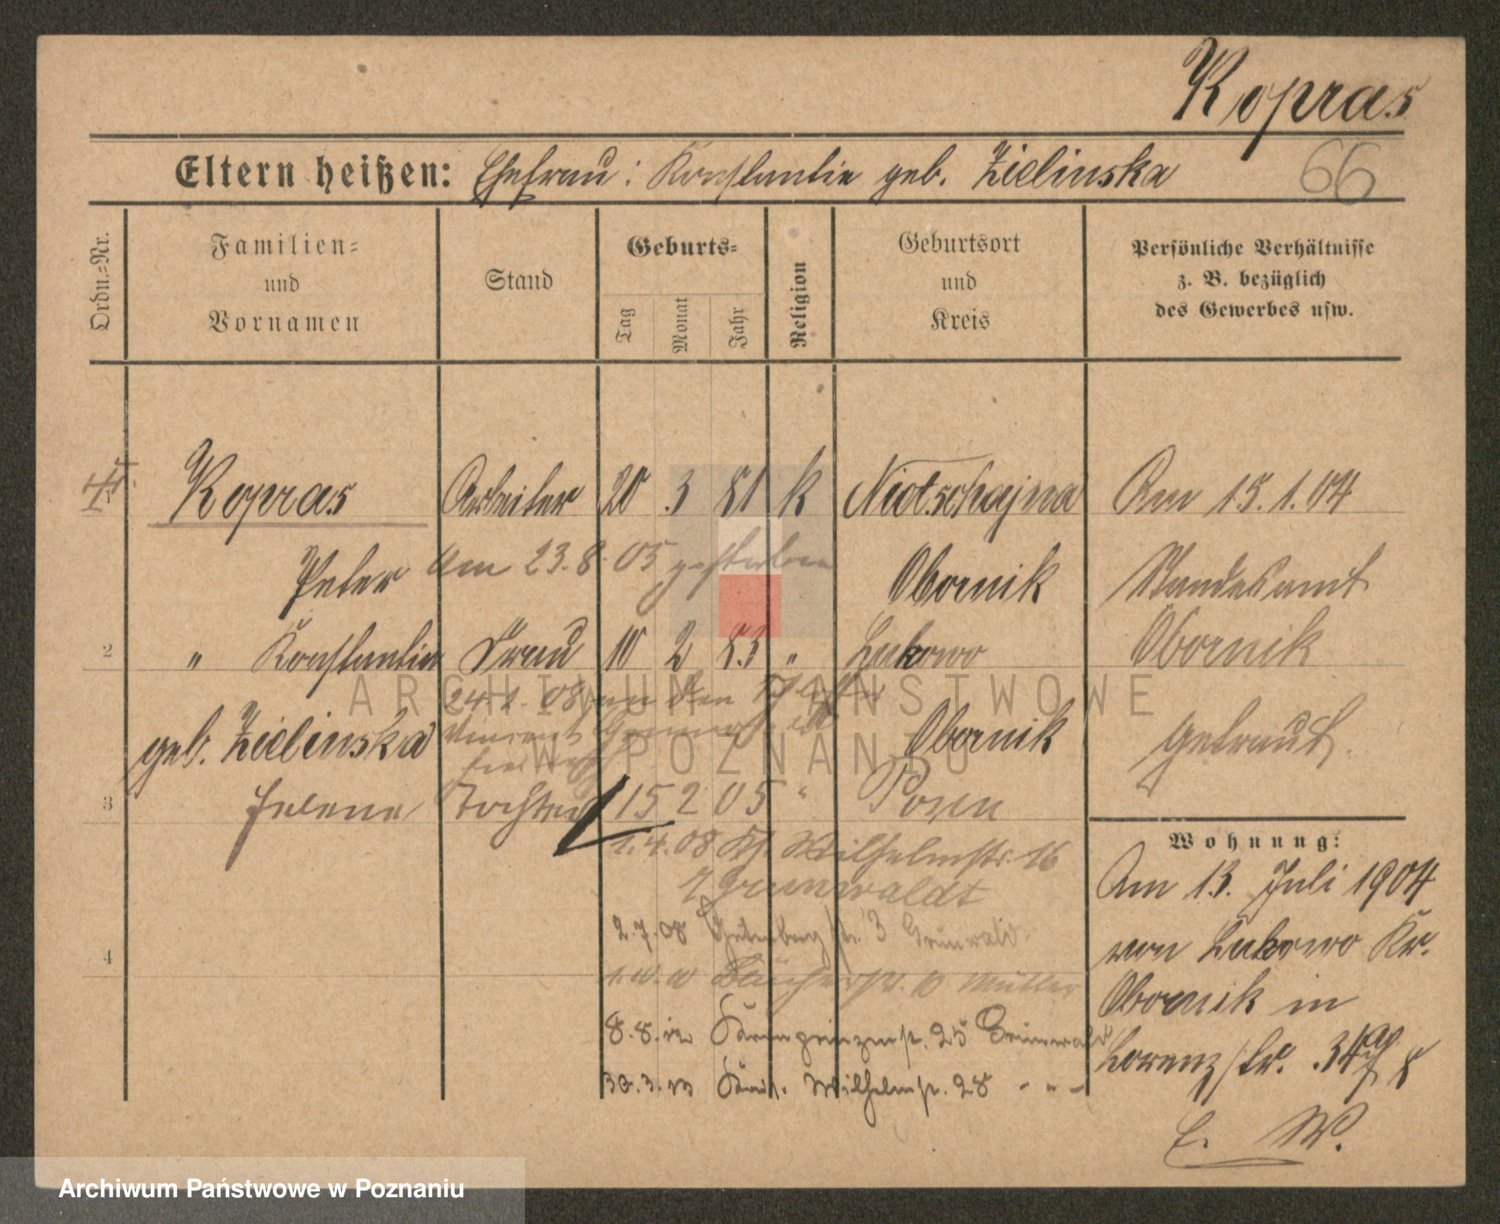 Kopras
Eltern heißen: Ehefrau: Konstantin geb. Zielinska
66
Ordn.-Nr.
Familien-
und
Vornamen
Stand
Geburts-
Tag
Monat
Jahr
Religion
Geburtsort
und
Kreis
Persönliche Verhältnisse
z. B. bezüglich
des Gewerbes usw.
1 Kopras Arbeiter 20 3 81 k Niotschajna Am 15.1.04
Peter Am 23.8.05 gestorben Obornik Standesamt
2 " Konstantin Frau 10 2 83 " Lukowo Obornik
24.1.08 an den
geb. Zielinska Obornik getraut.
3 Helene Tochter 15 2 05 " Posen
Wohnung:
1.4.08 Wilhelmstr. 16
Grunwaldt
2.7.08 3 Grünwald
4
Müller
8.8.12 Kronprinzenst. 25 Grünwald
30.3.13 Wilhelmst. 28 - " -
Am 13. Juli 1904
von Lukowo Kr.
Obornik in
Lorenzstr.
E. W.
ARCHIWUM PAŃSTWOWE
W POZNANIU
Archiwum Państwowe w Poznaniu